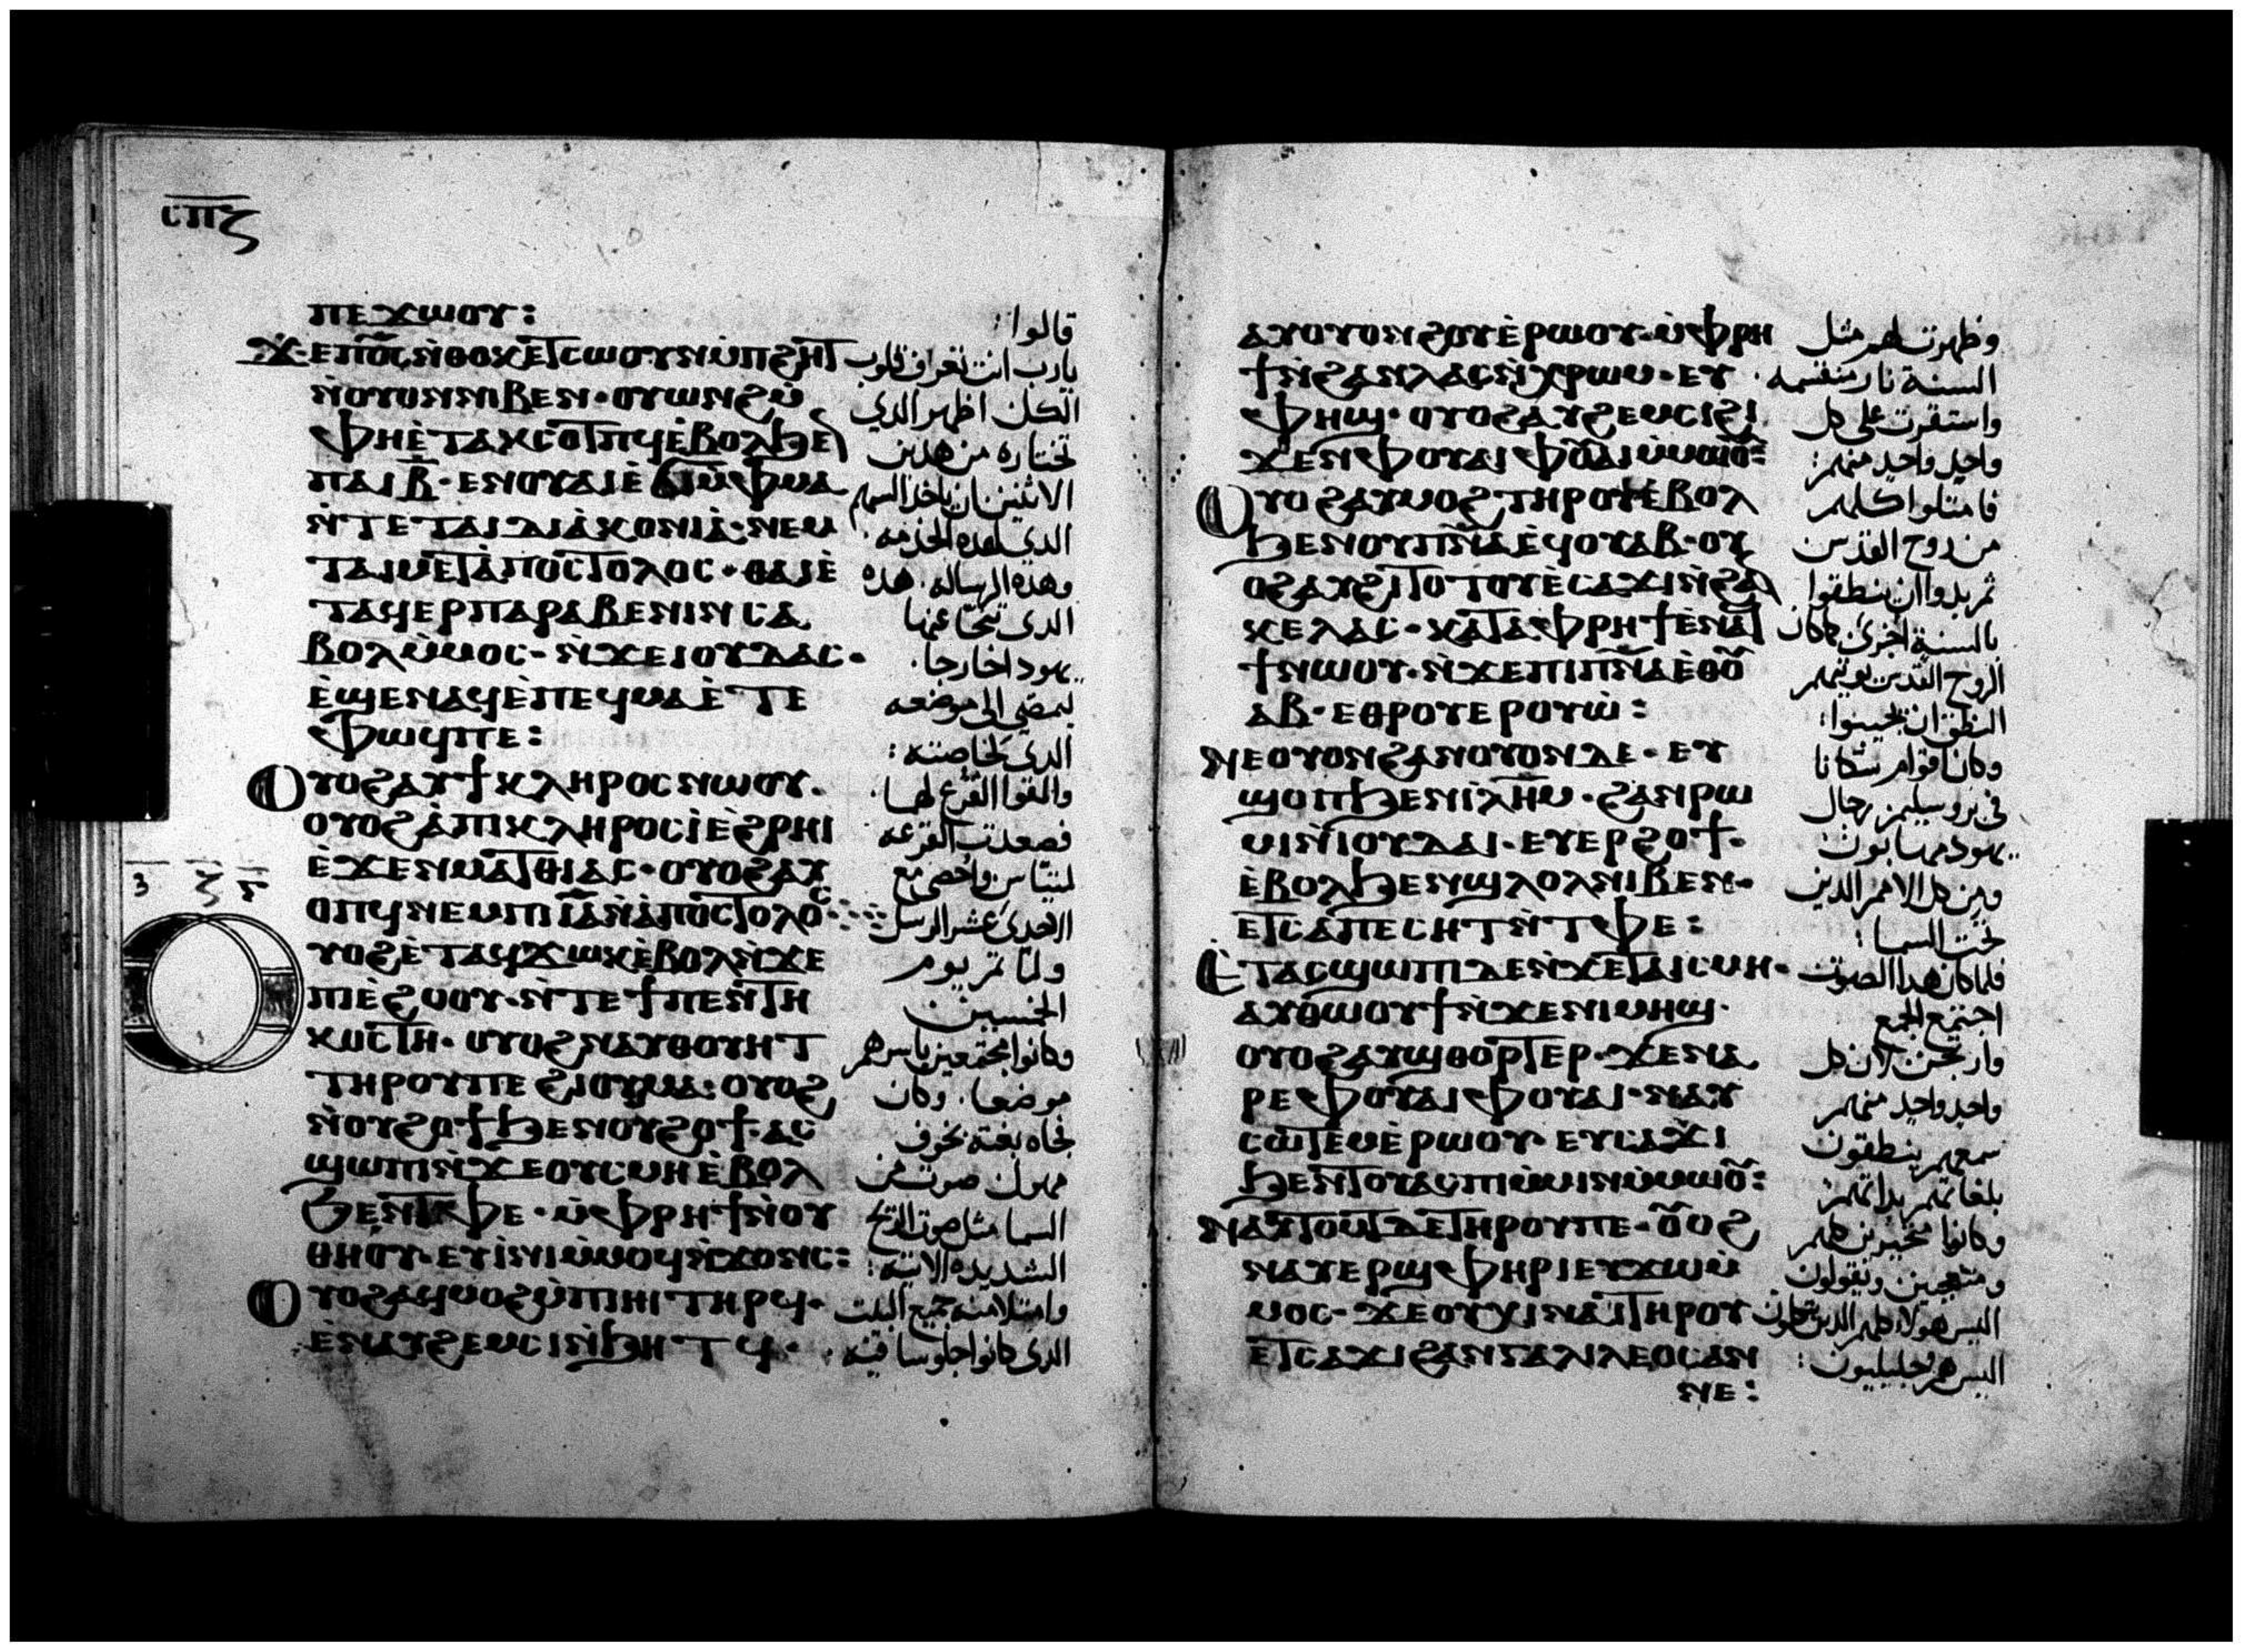 ⲥⲡⲍ
ⲡⲉϫⲱⲟⲩ:
ϫⲉⲡⲟ̅ⲥ̅ ⲛ̀ⲑⲟⲕ ⲉⲧⲥⲱⲟⲩⲛ ⲙ̀ⲡϩⲏⲧ
ⲛ̀ⲟⲩⲟⲛ ⲛⲓⲃⲉⲛ· ⲟⲩⲱⲛϩ ⲙ̀
ⲫⲏ ⲉ̀ⲧⲁⲕⲥⲟⲧⲡϥ ⲉ̀ⲃⲟⲗϧⲉⲛ
ⲡⲁⲓ ⲃ̅· ⲉⲛⲟⲩⲁⲓ ⲉ̀ϭⲓ ⲙ̀ⲫⲙⲁ
ⲛ̀ⲧⲉ ⲧⲁⲓⲇⲓⲁⲕⲟⲛⲓⲁ̀· ⲛⲉⲙ
ⲧⲁⲓⲙⲉⲧⲁ̀ⲡⲟⲥⲧⲟⲗⲟⲥ· ⲑⲁⲓ ⲉ̀
ⲧⲁϥⲉⲣⲡⲁⲣⲁⲃⲉⲛⲓⲛ ⲥⲁ
ⲃⲟⲗ ⲙ̀ⲙⲟⲥ· ⲛ̀ϫⲉ ⲓⲟⲩⲇⲁⲥ·
ⲉ̀ϣⲉⲛⲁϥ ⲉ̀ⲡⲉϥⲙⲁ ⲉ̀ⲧⲉ
ⲫⲱϥ ⲡⲉ:
ⲟⲩⲟϩ ⲁⲩϯ ⲕⲗⲏⲣⲟⲥ ⲛⲱⲟⲩ·
ⲟⲩⲟϩ ⲁ̀ⲡⲓⲕⲗⲏⲣⲟⲥ ⲓ̀ ⲉ̀ϩⲣⲏⲓ
ⲉ̀ϫⲉⲛ ⲙⲁⲧⲑⲓⲁⲥ· ⲟⲩⲟϩ ⲁⲩ
ⲟⲡϥ ⲛⲉⲙ ⲡⲓ ⲓ̅ⲁ̅ ⲛ̀ⲁ̀ⲡⲟⲥⲧⲟⲗⲟⲥ
ⲩⲟϩ ⲉ̀ⲧⲁϥϫⲱⲕ ⲉ̀ⲃⲟⲗ ⲛ̀ϫⲉ
ⲡⲓⲉ̀ϩⲟⲟⲩ· ⲛ̀ⲧⲉ ϯⲡⲉⲛⲧⲏ
ⲕⲟⲥⲧⲏ· ⲟⲩⲟϩ ⲛⲁⲩⲑⲟⲩⲏⲧ
ⲧⲏⲣⲟⲩ ⲡⲉ ϩⲓ ⲟⲩⲙⲁ· ⲟⲩⲟϩ
ⲛ̀ⲟⲩϩⲟϯ ϧⲉⲛ ⲟⲩϩⲟϯ· ⲁⲥ
ϣⲱⲡⲓ ⲛ̀ϫⲉ ⲟⲩⲥⲙⲏ ⲉ̀ⲃⲟⲗ
ϧⲉⲛ ⲧⲫⲉ· ⲙ̀ⲫⲣⲏϯ ⲛ̀ⲟⲩ
ⲑⲏⲟⲩ· ⲉⲩⲓ̀ⲛⲓ ⲙ̀ⲙⲟϥ ⲛ̀ϫⲟⲛⲥ:
ⲟⲩⲟϩ ⲁϥⲙⲟϩ ⲙ̀ⲡⲓⲏⲓ ⲧⲏⲣϥ·
ⲉ̀ⲛⲁⲩϩⲉⲙⲥⲓ ⲛ̀ϧⲏⲧϥ·
قالوا:
يارب انت تعرف قلوب
الكل اظهر الدي
تختاره من هدين
الاثنين ان ياخد السهم
الدي لهده الخدمه
وهده الرساله· هده
الدي تنحا عنها
يهودا خارجا·
ليمضي الي موضعه
الدي لخاصته:
والقوا القرع لهما·
فصعدت القرعه
لمتياس واحصي مع
الاحدي عشر الرسل
ولما تم يوم
الخمسين
وكانوا مجتمعين باسرهم
موضعا· وكان
فجاه بغته بخوف
مهول صوت من
السما مثل صوت الريح
الشديده الاتيه:
وامتلا منه جميع البيت
الدي كانوا جلوسا فيه
ⲁⲩⲟⲩⲟⲛϩⲟⲩ ⲉ̀ⲣⲱⲟⲩ· ⲙ̀ⲫⲣⲏ
ϯ ⲛ̀ϩⲁⲛⲗⲁⲥ ⲛ̀ⲭⲣⲱⲙ· ⲉⲩ
ⲫⲏϣ· ⲟⲩⲟϩ ⲁⲩϩⲉⲙⲥⲓ ϩⲓ
ϫⲉⲛ ⲫⲟⲩⲁⲓ ⲫⲟⲩⲁⲓ ⲙ̀ⲙⲱⲟⲩ:
ⲟⲩⲟϩ ⲁⲩⲙⲟϩ ⲧⲏⲣⲟⲩ ⲉ̀ⲃⲟⲗ
ϧⲉⲛ ⲟⲩⲡ̅ⲛ̅ⲁ̅ ⲉϥⲟⲩⲁⲃ· ⲟⲩ
ⲟϩ ⲁⲩϩⲓⲧⲟⲧⲟⲩ ⲉ̀ⲥⲁϫⲓ ⲛ̀ϩⲁⲛ
ⲕⲉⲗⲁⲥ· ⲕⲁⲧⲁ ⲫⲣⲏϯ ⲉ̀ⲛⲁϥ
ϯ ⲛⲱⲟⲩ· ⲛ̀ϫⲉ ⲡⲓⲡ̅ⲛ̅ⲁ̅ ⲉ̀ⲑⲟⲩ
ⲁⲃ· ⲉⲑⲣⲟⲩⲉⲣⲟⲩⲱ̀:
ⲛⲉ ⲟⲩⲟⲛ ϩⲁⲛⲟⲩⲟⲛ ⲇⲉ· ⲉⲩ
ϣⲟⲡ ϧⲉⲛ ⲓⲗⲏⲙ· ϩⲁⲛⲣⲱ
ⲙⲓ ⲛ̀ⲓⲟⲩⲇⲁⲓ· ⲉⲩⲉⲣϩⲟϯ·
ⲉ̀ⲃⲟⲗϧⲉⲛ ϣⲗⲟⲗ ⲛⲓⲃⲉⲛ·
ⲉⲧⲥⲁⲡⲉⲥⲏⲧ ⲛ̀ⲧⲫⲉ:
ⲉ̀ⲧⲁⲥϣⲱⲡⲓ ⲇⲉ ⲛ̀ϫⲉ ⲧⲁⲓⲥⲙⲏ·
ⲁⲩⲑⲱⲟⲩϯ ⲛ̀ϫⲉ ⲛⲓⲙⲏϣ·
ⲟⲩⲟϩ ⲁⲩϣⲑⲟⲣⲧⲉⲣ· ϫⲉ ⲛⲁ
ⲣⲉ ⲫⲟⲩⲁⲓ ⲫⲟⲩⲁⲓ· ⲛⲁⲩ
ⲥⲱⲧⲉⲙ ⲉ̀ⲣⲱⲟⲩ· ⲉⲩⲥⲁϫⲓ
ϧⲉⲛ ⲧⲟⲩⲁⲥⲡⲓ ⲙ̀ⲙⲓⲛ ⲙ̀ⲙⲱⲟⲩ:
ⲛⲁⲩⲧⲟⲙⲧ ⲇⲉ ⲧⲏⲣⲟⲩ ⲡⲉ· ⲟⲩⲟϩ
ⲛⲁⲩⲉⲣϣⲫⲏⲣⲓ ⲉⲩϫⲱ ⲙ̀
ⲙⲟⲥ· ϫⲉ ⲟⲩⲭⲓ ⲛⲁⲓ ⲧⲏⲣⲟⲩ
ⲉⲧⲥⲁϫⲓ ϩⲁⲛⲅⲁⲗⲓⲗⲉⲟⲥ ⲁⲛ
ⲛⲉ:
وظهرت لهم مثل
السنة نار منقسمه
واستقرت علي كل
واحد واحد منهم:
فامتلوا كلهم
من روح القدس
ثم بدوا ان ينطقوا
بالسنية اخري كما كان
الروح القدس يوتيهم
النطق ان يجيبوا:
وكان اقوام سكانا
في يروسليم رجال
يهود مهابون
ومن كل الامم الدين
تحت السما:
فلما كان هدا الصوت
اجتمع الجمع
وارتجت لان كل
واحد واحد منهم
سمعهم ينطقون
بلغاتهم بداتهم:
وكانوا متحيرين كلهم
ومتعجبين ويقولون
اليس هولا كلهم الدين يتكلمون
اليس هم جليليون: